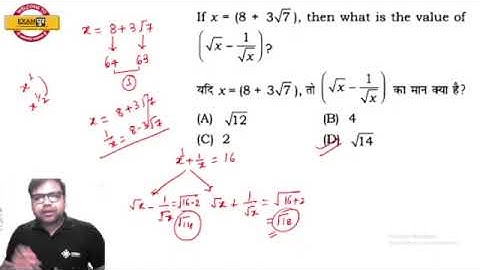 WELCOME TO
EXAM
If x = (8 + 3√7), then what is the value of
(√x - 1/√x)?
यदि x = (8 + 3√7), तो (√x - 1/√x) का मान क्या है?
(A) √12
(B) 4
(C) 2
(D) √14
x = 8+3√7
64 63
x^1
x^1/2
x = 8+3√7
1/x = 8-3√7
x^1 + 1/x = 16
√x - 1/√x = √16-2
√14
√x + 1/√x = √16+2
= √18